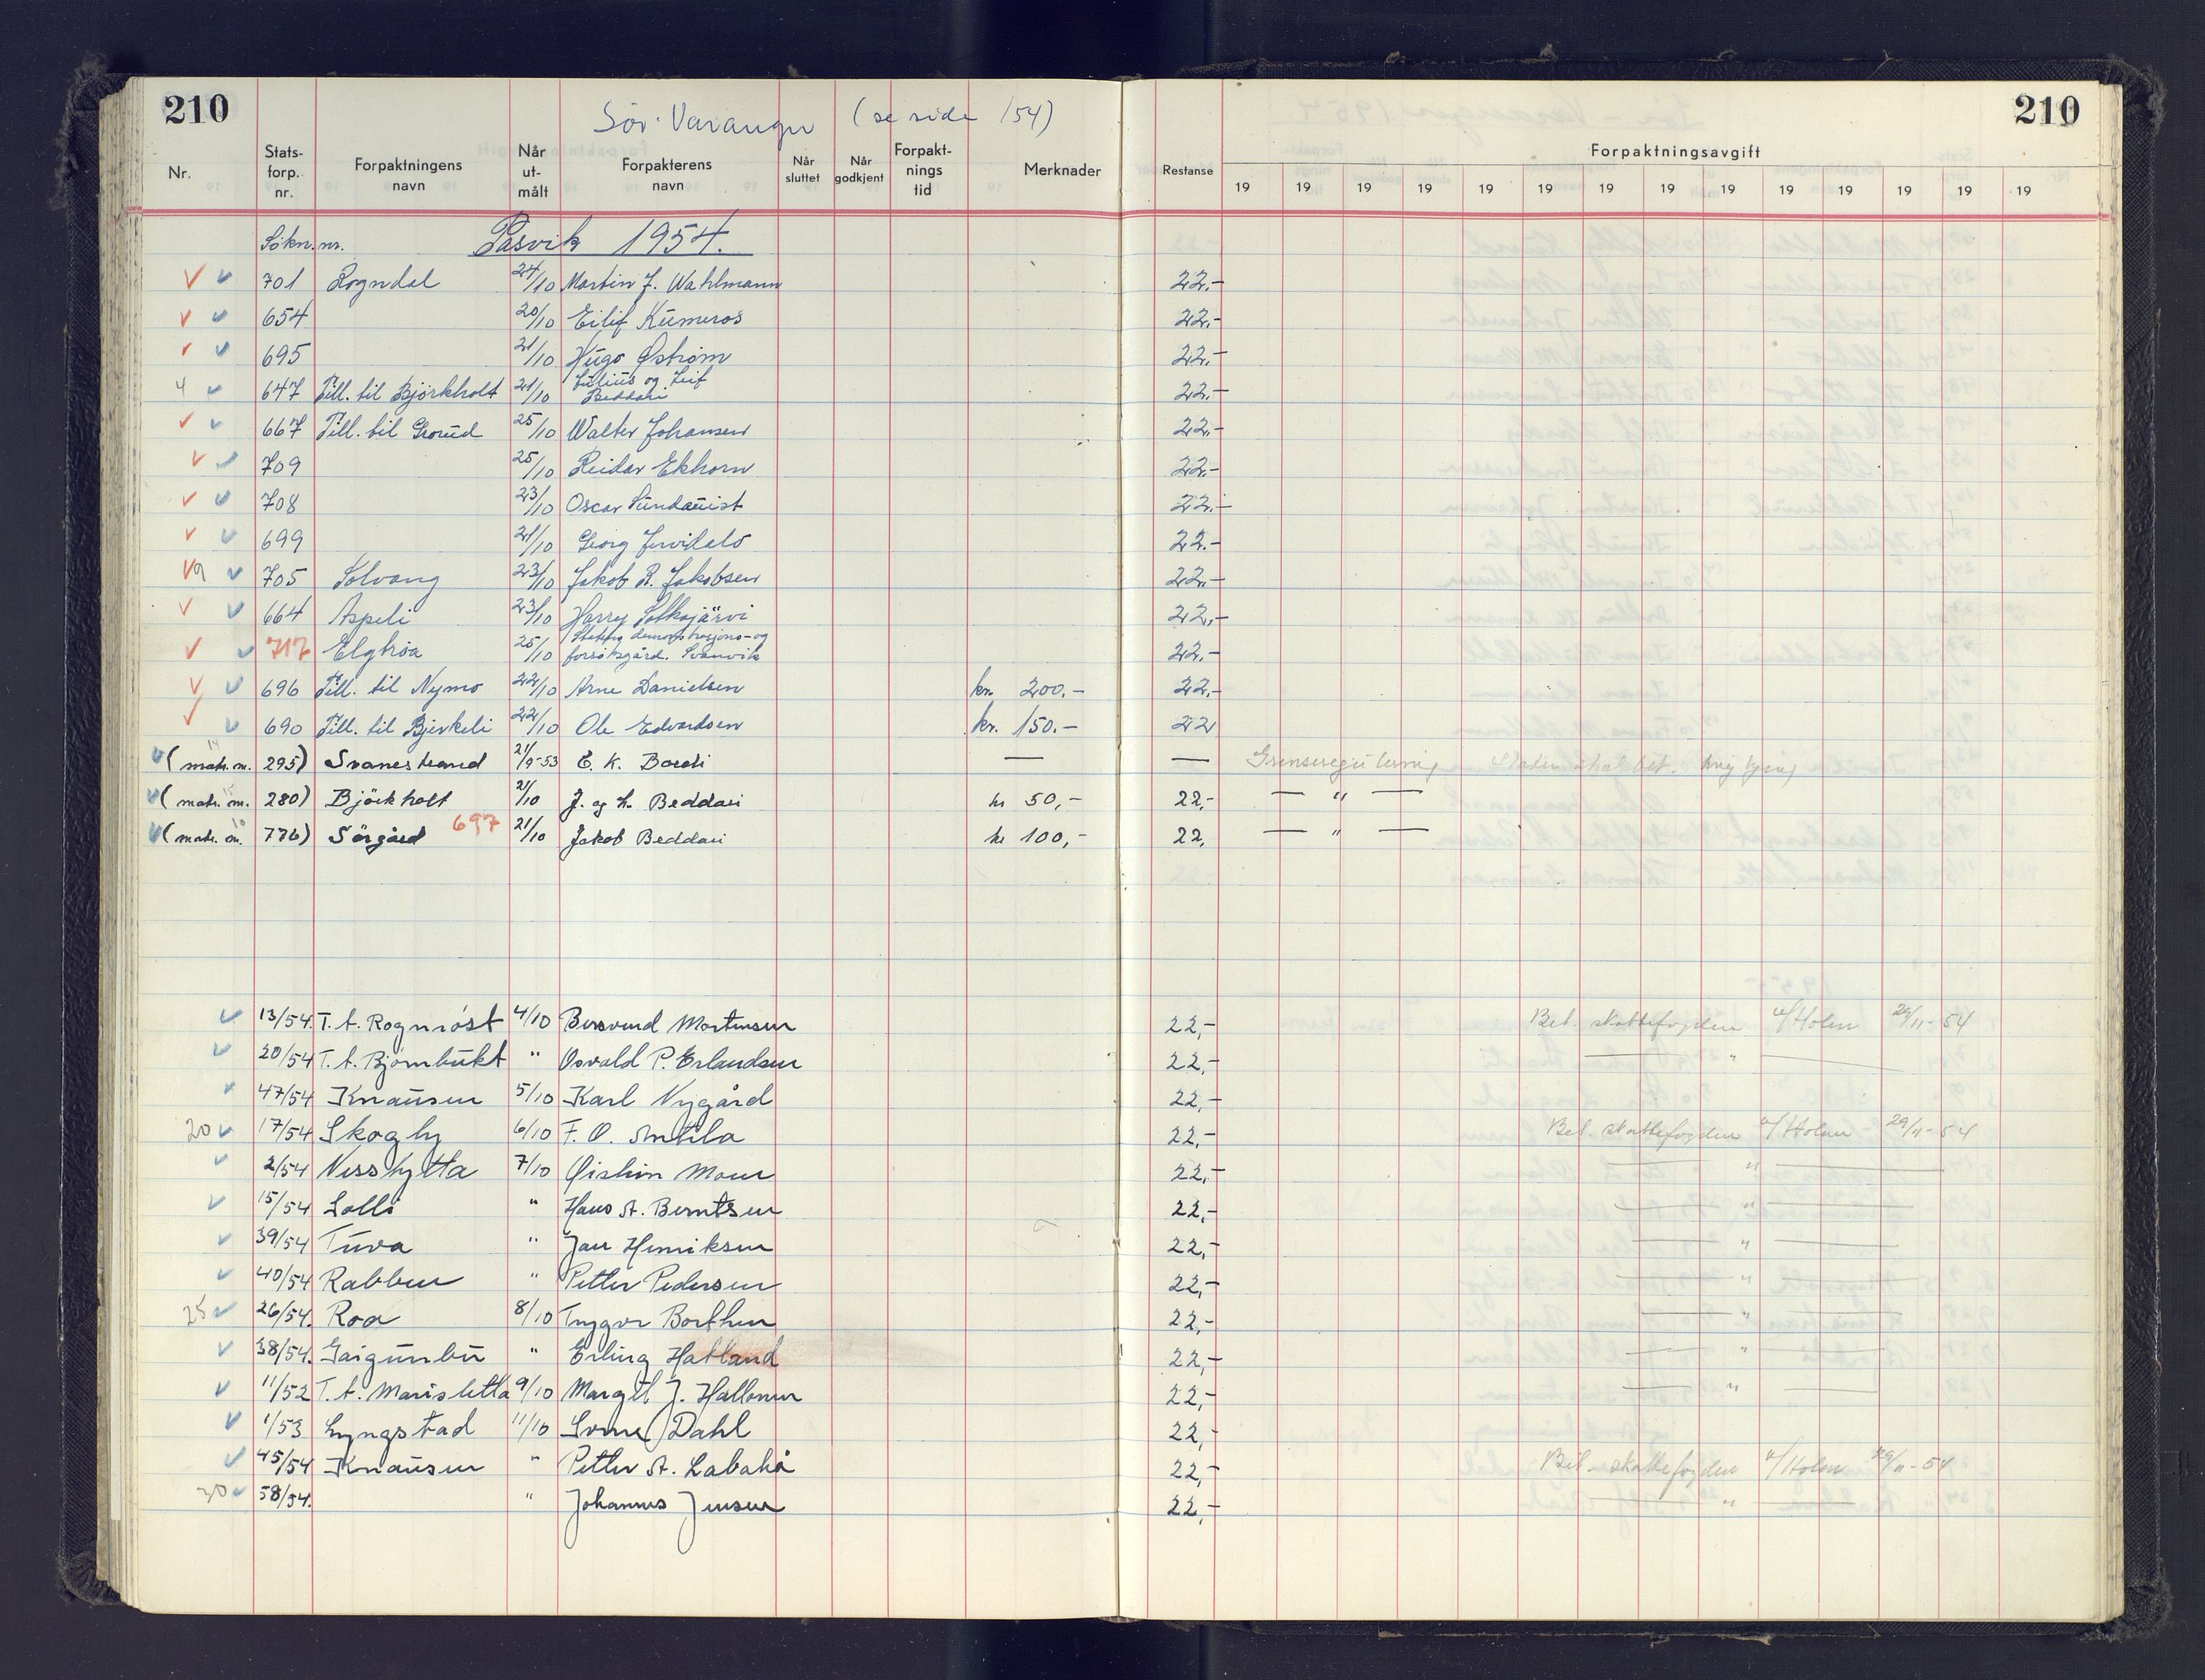 210
210
Sör-Varanger (se side 154)
Nr. Stats-forp. nr. Forpaktningens navn Når ut-målt Forpakterens navn Når sluttet Når godkjent Forpakt-nings tid Merknader Restanse Forpaktningsavgift
19 19 19 19 19 19 19 19 19 19 19 19 19 19
Søkn.nr. Pasvik 1954.
701 Rogndal 24/10 Martin J. Wahlmann 22.-
654 20/10 Eilif Kumeros 22.-
695 21/10 Hugo Østrøm 22.-
4 647 Till. til Björkholt 21/10 Julius og Leif Beddari 22.-
667 Till. til Grorud 25/10 Walter Johansen 22.-
709 25/10 Reidar Ekhorn 22.-
708 23/10 Oscar Sundquist 22.-
699 21/10 Georg 22.-
9 705 Solvang 23/10 Jakob R. Jakobsen 22.-
664 Aspeli 23/10 Harry Solkojärvi 22.-
717 Elghøa 25/10 Statens demonstrasjons- og forsøksgård. Svanvik 22.-
696 Till. til Nymo 22/10 Arne Danielsen kr. 200.- 22.-
690 Till. til Bjerkeli 22/10 Ole Edvardsen kr. 150.- 22
(matr. nr. 295) Svanestrand 21/9-53 E. K. Bordi — — Grenseregulering Staten skal bet.
(matr. nr. 280) Björkholt 21/10 J. og L. Beddari kr 50,- 22,- — " —
(matr. nr. 776) Sörgård 697 21/10 Jakob Beddari kr 100,- 22, — " —
13/54. T. t. Rognrøst 4/10 Bersvend Mortensen 22,- Bet. skattefogden v/Holm 29/11-54
20/54 T. t. Bjørnbukt " Osvald P. Erlandsen 22,- — " —
47/54 Knausen 5/10 Karl Nygård 22,-
20 17/54 Skogly 6/10 F. O. Anttila 22,- Bet. skattefogden v/Holm 29/11-54
2/54 Nisshytta 7/10 Øistein Moen 22,- — " —
15/54 Solli " Hans A. Berntsen 22,- — " —
39/54 Tuva " Jan Henriksen 22,- — " —
40/54 Rabben " Petter Pedersen 22,- — " —
25 26/54. Roa 8/10 Trygve Borthen 22,- — " —
38/54. Gaigunbu " Erling Hatland 22,- — " —
11/52 T. t. Marisletta 9/10 Margit J. Hallonen 22,- — " —
1/53 Lyngstad 11/10 Sverre Dahl 22,-
45/54 Knausen " Petter A. Labahå 22,- Bet. skattefogden v/Holm 29/11-54
30 58/54. " Johannes Jensen 22,- — " —